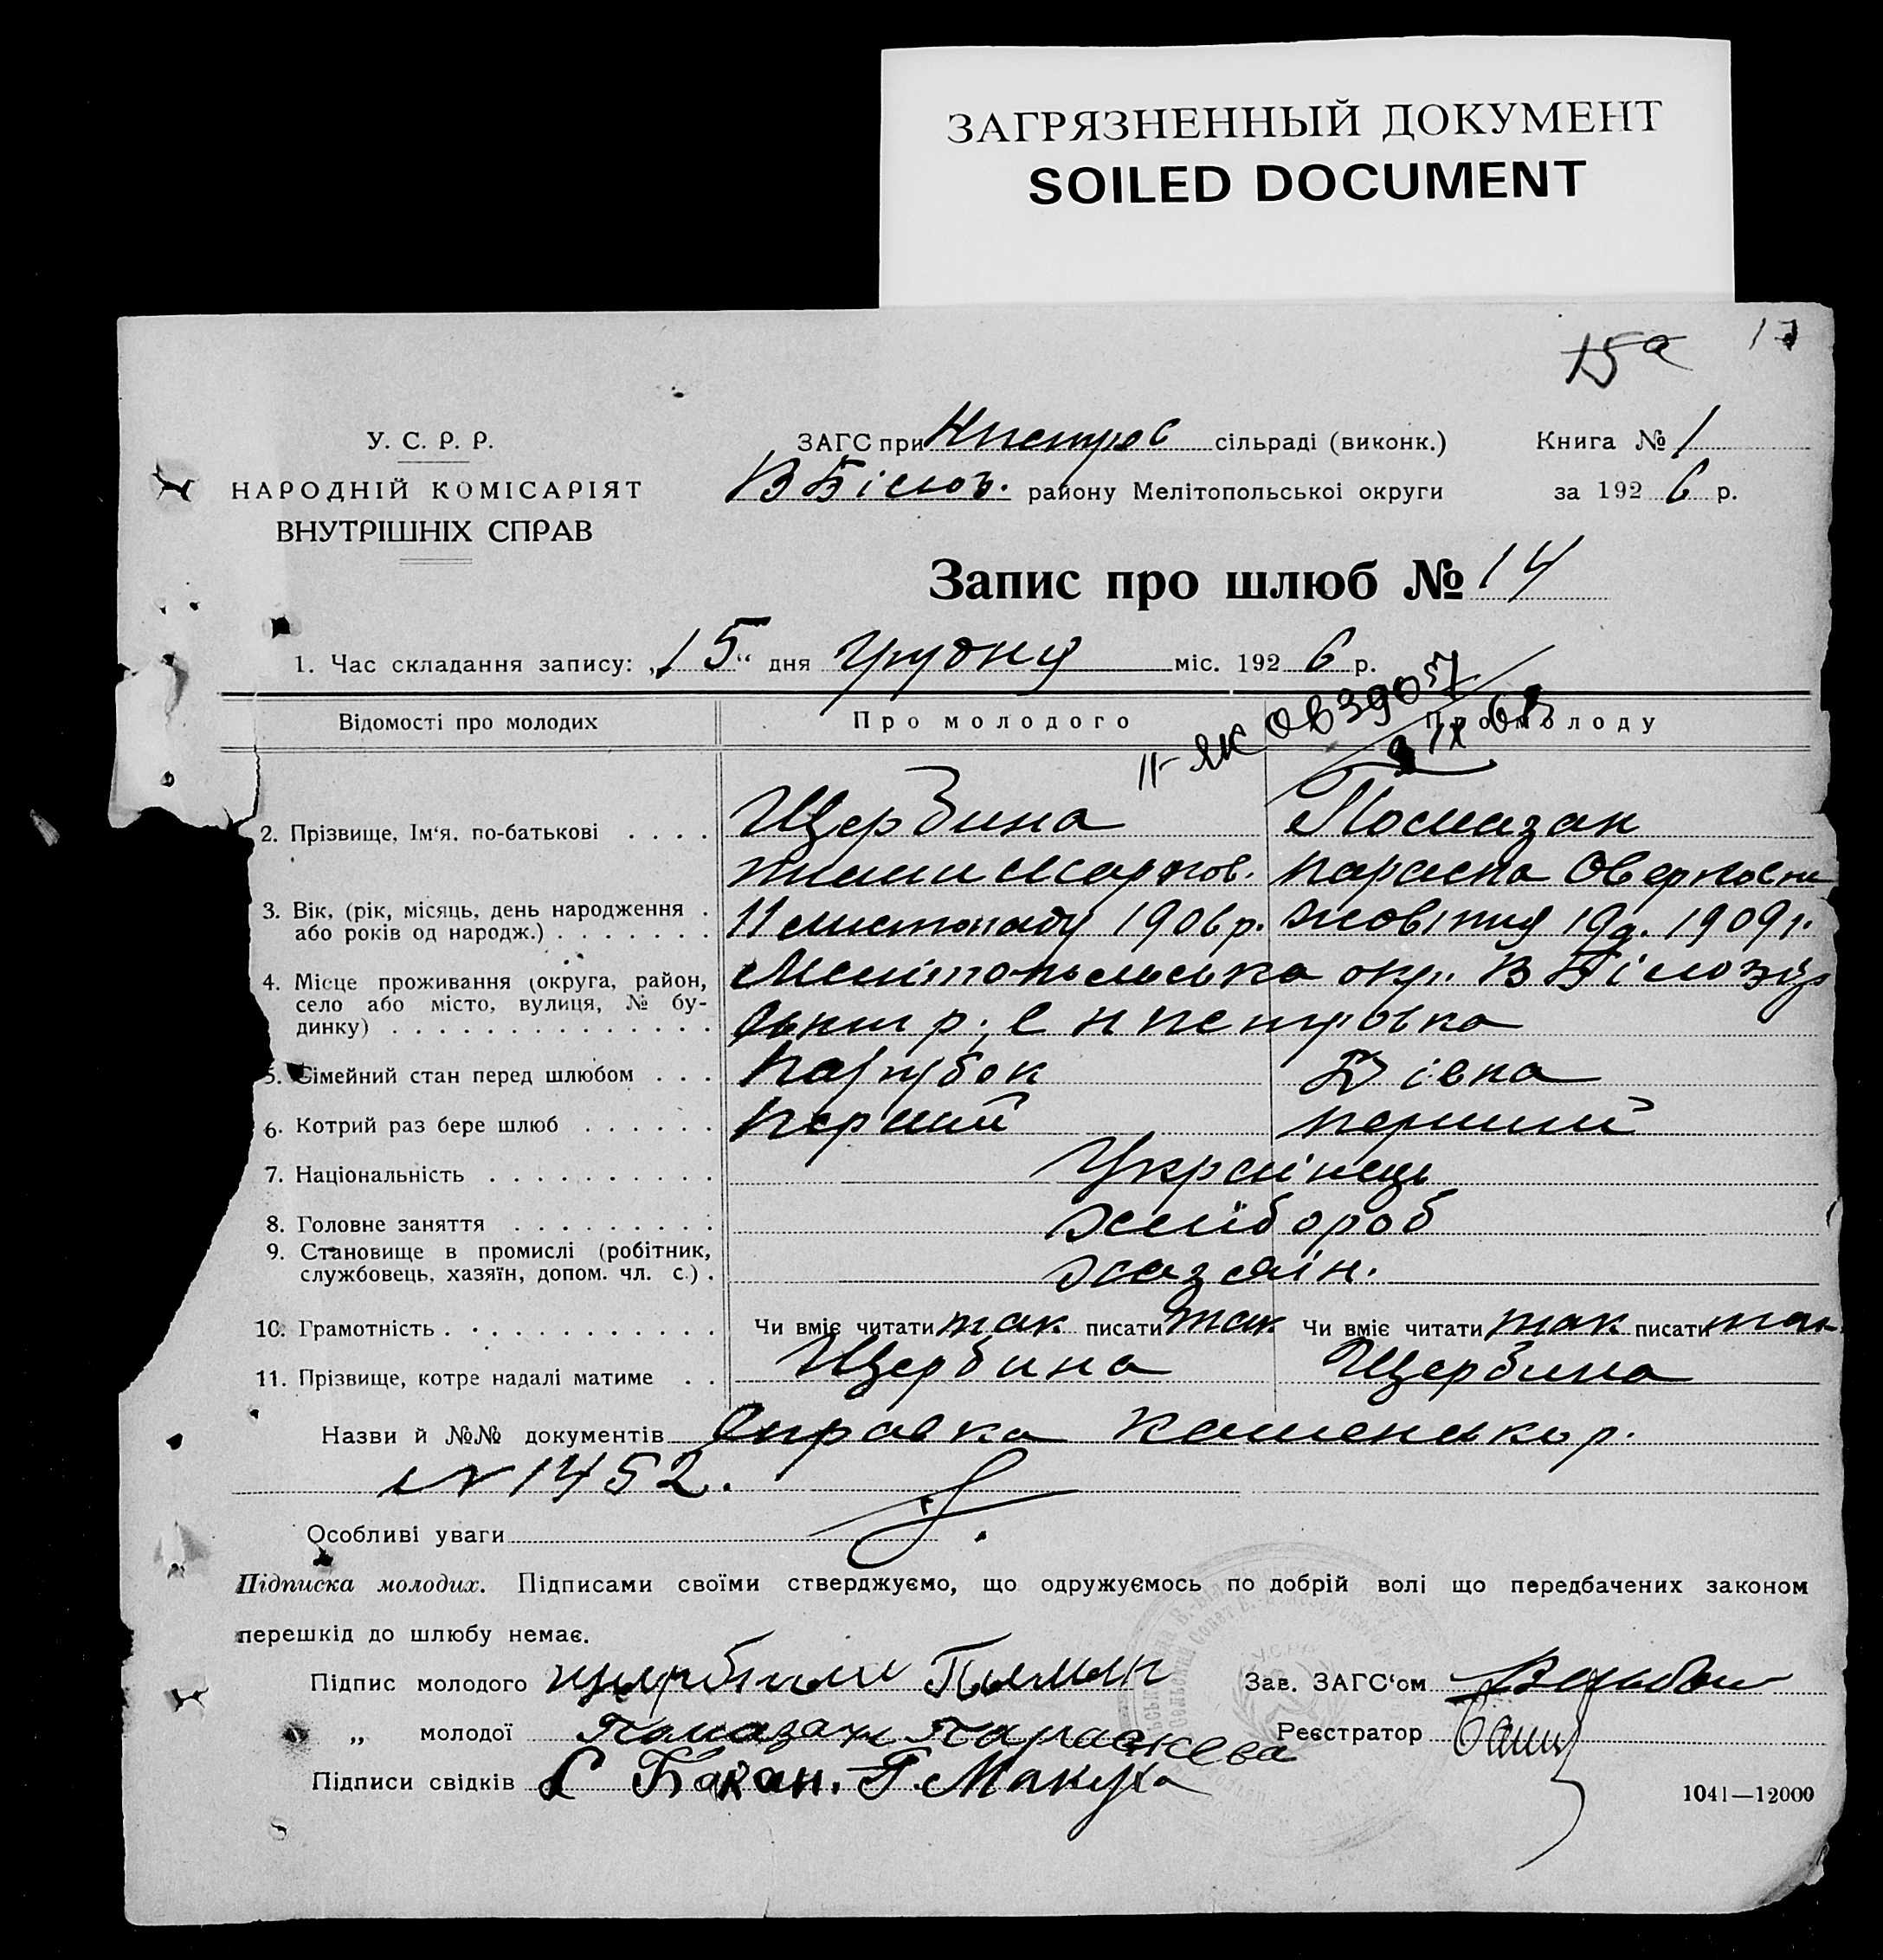 ЗАГРЯЗНЕННЫЙ ДОКУМЕНТ
SOILED DOCUMENT
15а 17
У. С. Р. Р.
НАРОДНІЙ КОМІСАРІЯТ
ВНУТРІШНІХ СПРАВ
ЗАГС при сільраді (виконк.) Книга № 1
В Білоз. району Мелітопольської округи за 1926 р.
Запис про шлюб № 14
1. Час складання запису: „15“ дня Грудня міс. 1926 р.
Відомості про молодих Про молодого Про молоду
II-ЯК 039057
2. Прізвище, Ім'я, по-батькові . . . . Щербина Помазан
Марков. Параска Оверковна
3. Вік, (рік, місяць, день народження . 11 листопаду 1906 р. жовтня 19д. 1909 р.
або років од народж.) . . . . . . .
4. Місце проживання (округа, район, Мелітопольська окр. В Білозір
село або місто, вулиця, № бу-
динку) . . . . . . . . . . . . . . ський р., с Нпетровка
5. Сімейний стан перед шлюбом . . . Парубок Дівка
6. Котрий раз бере шлюб . . . . . . Перший перший
7. Національність . . . . . . . . . . Українець
8. Головне заняття . . . . . . . . . хлібороб
9. Становище в промислі (робітник,
службовець, хазяїн, допом. чл. с.) . хазяїн.
10. Грамотність . . . . . . . . . . . . Чи вміє читати так писати так Чи вміє читати так писати так
11. Прізвище, котре надалі матиме . . Щербина Щербина
Назви й №№ документів Справка Каменськ р.
N 1452.
Особливі уваги
Підписка молодих. Підписами своїми стверджуємо, що одружуємось по добрій волі що передбачених законом
перешкід до шлюбу немає.
Підпис молодого Зав. ЗАГС'ом
„ молодої Помазан Параскева Реєстратор
Підписи свідків С Бакан. Г. Макуха
1041—12000